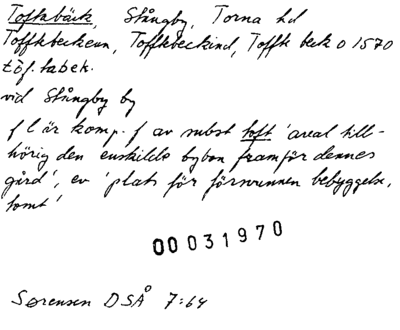 Toftabäck, Stångby, Torna hd
Toffkbeckenn, Toffkbeckind, Toffk beck o 1570
töf.tabek.
vid Stångby by
f l är komp. f av subst toft 'areal till-
hörig den enskilde bybon framför dennes
gård', ev 'plats för försvunnen bebyggelse,
tomt'
00031970
Sørensen DSÅ 7:64